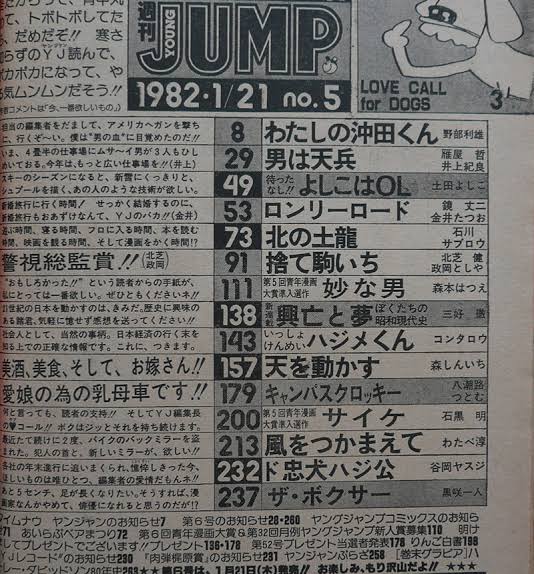 て、トボトボしてた
、だめだぞ!! 寒さ
らずのＹＪ読んで、
カポカになって、や
気ムンムンだそう!!
コメントは「今、一番欲しいもの」
週刊 YOUNG JUMP
1982・1/21 no.5
LOVE CALL
for DOGS
3
担当の編集者をだまして、アメリカへガンを撃ち
に、行くぞ〜い。僕は"男の血"に目覚めたのだ!!
8 わたしの沖田くん 野部利雄
いま、4畳半の仕事場にムサ〜イ男が3人もひし
めいてる。今年は、もっと広い仕事場を!!(井上)
29 男は天兵 雁屋 哲 井上紀良
スキーのシーズンになると、新雪にくっきりと、
シュプールを描く、あの人のような技術が欲しい。
49 待ったなし!! よしこはOL 土田よしこ
新婚旅行に行く時間! せっかく結婚するのに、
新婚旅行もおあずけなんて、ＹＪのバカ!!(金井)
53 ロンリーロード 鏡 丈二 金井たつお
遊ぶ時間、寝る時間、フロに入る時間、本を読む
時間、映画を観る時間、そして漫画をかく時間!?
73 北の土龍 石川サブロウ
警視総監賞!! (北芝 政岡)
91 捨て駒いち 北芝 健 政岡としや
"おもしろかった!!"という読者からの手紙が、
私にとっては一番欲しい。ぜひともくださいネ!!
111 第5回青年漫画大賞準入選作 妙な男 森本はつえ
21世紀の日本を動かすのは、きみだ。歴史に興味の
ある諸君、気軽に憶せず感想を送ってください!!
138 新連載 興亡と夢 ぼくたちの昭和現代史 三好 徹
社会人として、当然の事柄。日本経済の行く末を
知る上での正確な情報です。これに、つきます。
143 いっしょけんめい ハジメくん コンタロウ
美酒、美食、そして、お嫁さん!!
157 天を動かす 森しんいち
愛娘の為の乳母車です!!
179 キャンパスクロッキー 八潮路つとむ
何と言っても、読者の支持!! そしてＹＪ編集長
の♥コール!! ボクはジッとそれを待ち続けます。
200 第5回青年漫画大賞準入選作 サイケ 石黒 明
最近たて続けに2度、バイクのバックミラーを盗
まれた。犯人の首と、新しいミラーが、欲しい!!
213 風をつかまえて わたべ淳
各社の年末進行に追いまくられ、憔悴しきった今、
ほしいものは唯ひとつ、編集者の愛情だもんネ!!
232 ド忠犬ハジ公 谷岡ヤスジ
あと5センチ、足が長くなりたい。そうすれば、漫
画家なんかやめて、俳優になれると思うのだが!?
237 ザ・ボクサー 黒咲一人
タイムナウ ヤンジャンのお知らせ7 第6号のお知らせ28・260 ヤングジャンプコミックスのお知ら
せ71 あいらぶペアまつり72 第6回青年漫画大賞&第32回月例ヤングジャンプ新人賞募集110 明け
ましてプレゼントでございます!!プレゼント136・178 第52号プレゼント当選者発表178 りんご白書198
ＹＪレコード」のお知らせ230 「肉弾梶原賞」のお知らせ231 ヤンジャンぷらざ258 【巻末グラビア】ハ
ーレー・ダビッドソン80年史263 ★★第6号は、1月21日(木)発売!! お楽しみ、もり沢山だよ!!